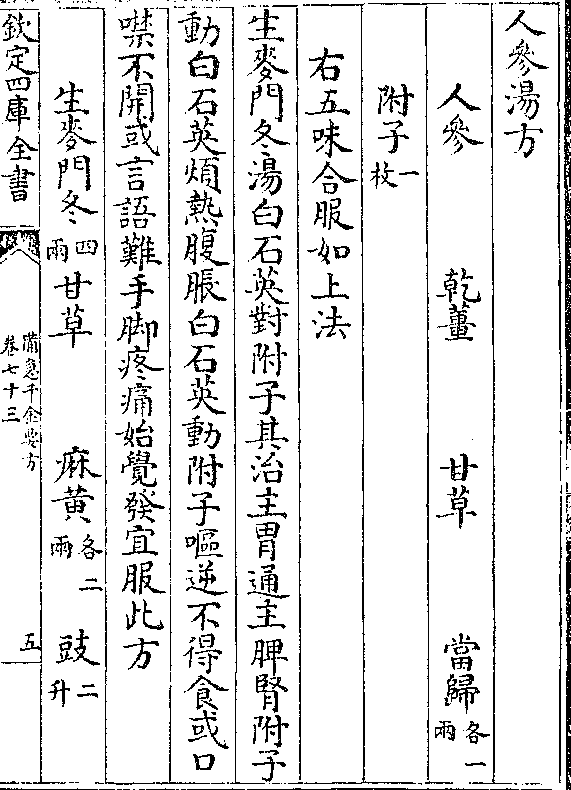 人參湯方
人參 乾薑 甘草 當歸各一兩
附子一枚
右五味合服如上法
生麥門冬湯白石英對附子其治主胃通主脾腎附子
動白石英煩熱腹脹白石英動附子嘔逆不得食或口
噤不開或言語難手脚疼痛始覺發宜服此方
生麥門冬四兩 甘草 麻黄各二兩 豉二升
欽定四庫全書
備急千金要方
卷七十三
五